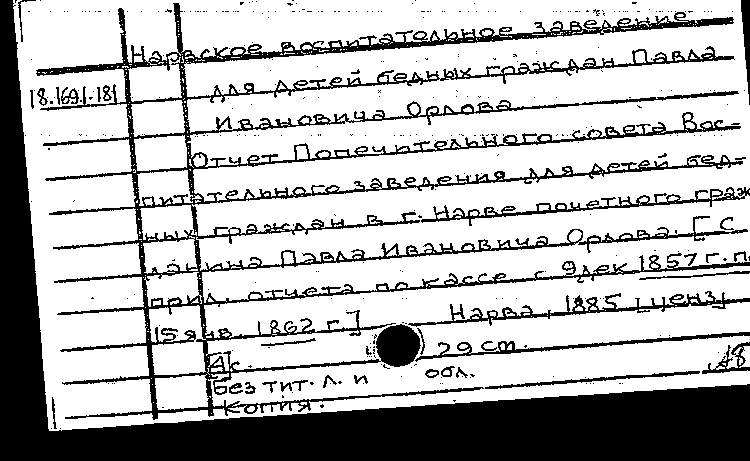 Нарвское воспитательное заведение
18.169.1-181 для детей бедных граждан Павла
Ивановича Орлова.
Отчет Попечительного совета Вос-
питательного заведения для детей бед-
ных граждан в г. Нарве почетного граж
данина Павла Ивановича Орлова. [С
прил. отчета по кассе с 9 дек 1857 г. п
15 янв. 1862 г.] Нарва, 1885 [ценз]
29 cm.
Без тит. л. и обл.
Копия.